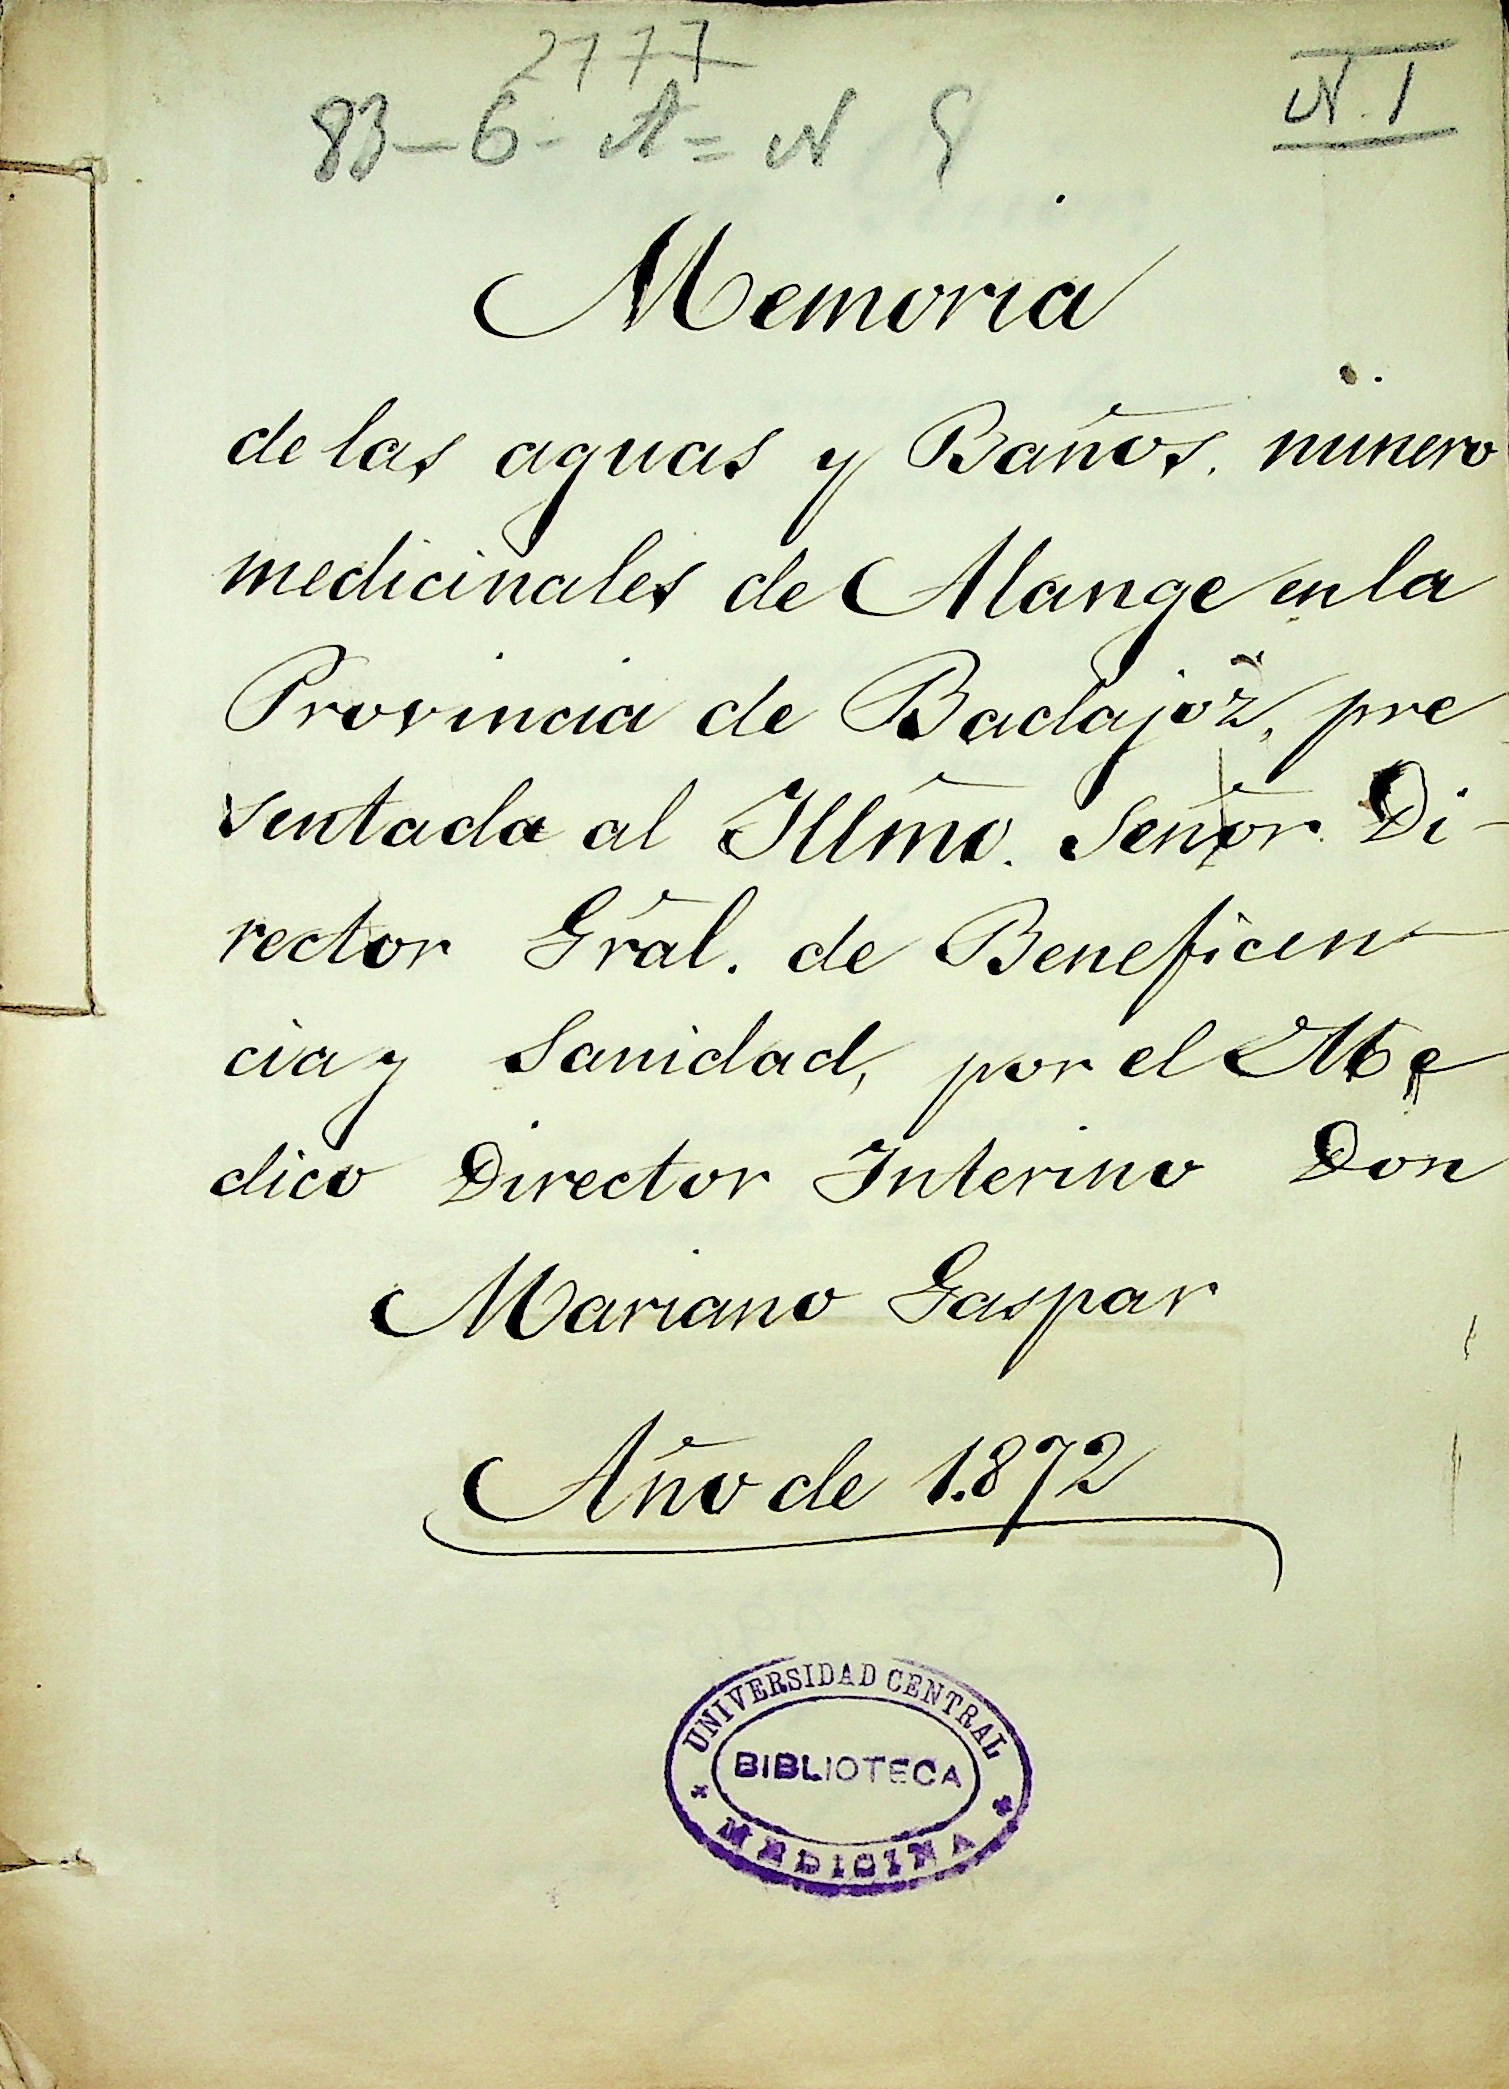 2777
83-6-A=N 9
N. 1
Memoria
de las aguas y Baños. minero
medicinales de Alange en la
Provincia de Badajoz, pre
sentada al Illmo. Señor Di-
rector Gral. de Beneficen-
cia y Sanidad, por el Me
dico Director Interino Don
Mariano Gaspar
Año de 1.872
UNIVERSIDAD CENTRAL
BIBLIOTECA
MEDICINA